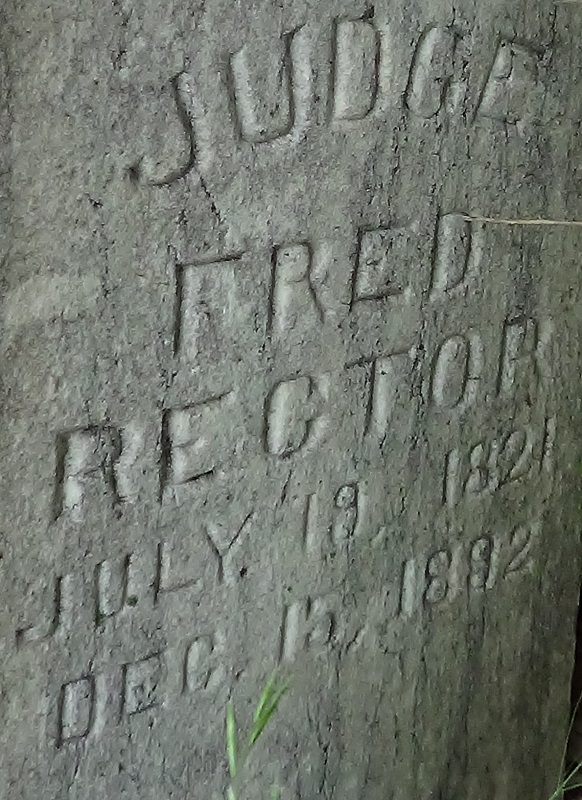 JUDGE
FRED
RECTOR
JULY 19, 1821
DEC. 15, 1892